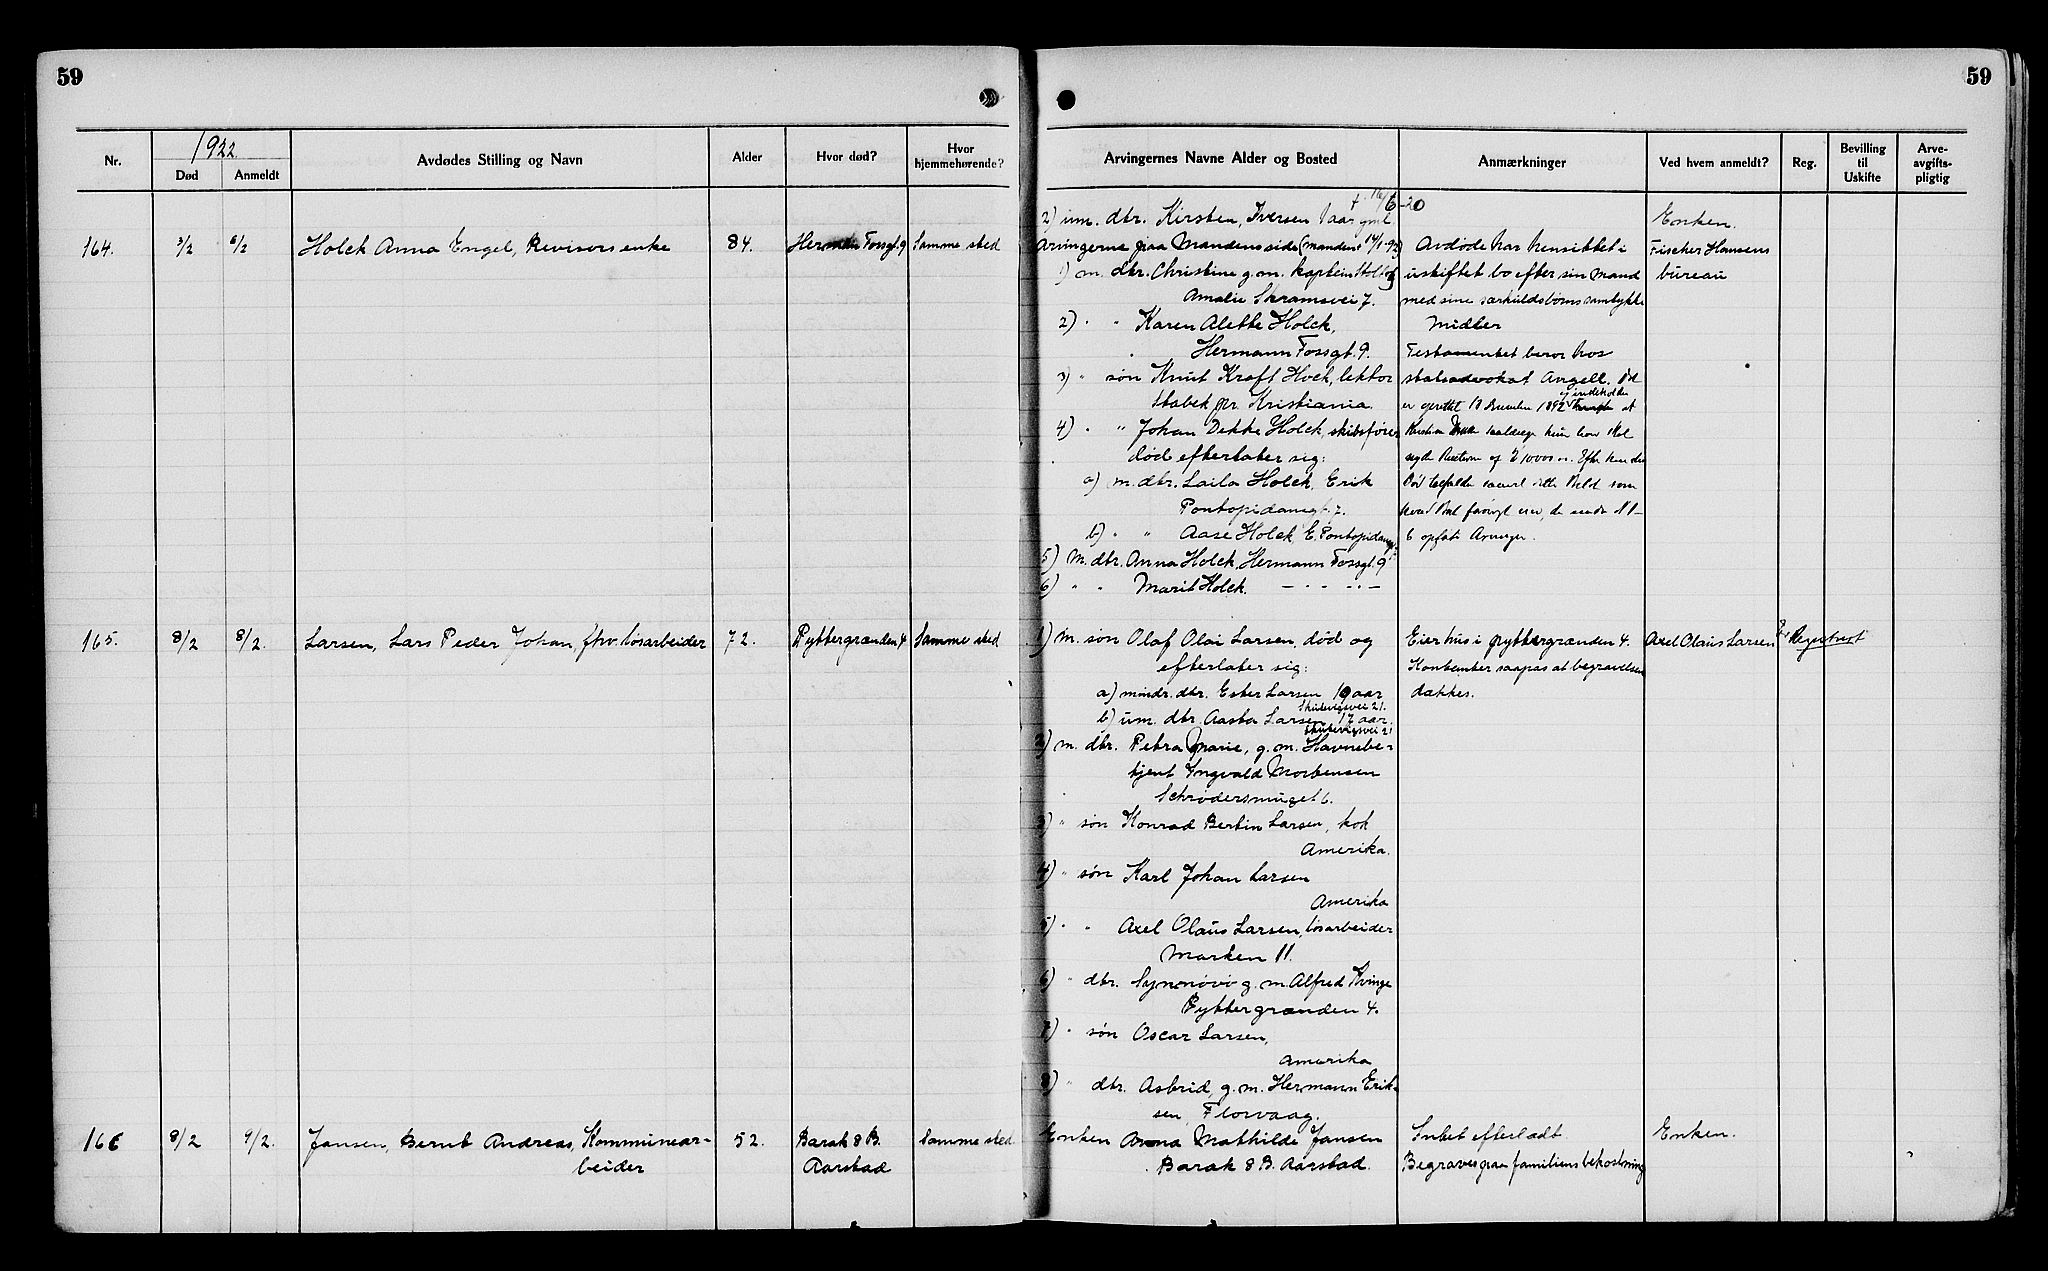 59
59
1922
Nr.
Død
Anmeldt
Avdødes Stilling og Navn
Alder
Hvor død?
Hvor hjemmehørende?
Arvingernes Navne Alder og Bosted
Anmærkninger
Ved hvem anmeldt?
Reg.
Bevilling til Uskifte
Arve-avgifts-pligtig
† 16/6-20
2) um. dtr. Kirsten Iversen 1 aar gml
Enken.
164. 3/2 6/2 Holck Anna Engel, Revisors enke 84. Hermann Fossgt. 9 Samme sted
Arvingerne paa Mandens side (manden † 14/1-92)
1) m. dtr. Christine g. m. kaptein
Amalie Skramsvei 7.
2) " " Karen Alette Holck,
Hermann Fossgt. 9.
3) " søn Knut Kraft Holck, lektor
Stabek pr. Kristiania.
4) " " Johan Dekke Holck, skibsfører
død efterlater sig:
a) m. dtr. Laila Holck, Erik
Pontopidansgt. 7.
b) " " Aase Holck, E. Pontopidansgt.
5) m. dtr. Anna Holck, Hermann Fossgt. 9
6) " " Marit Holck. — " — " —
Avdøde har hensittet i
uskiftet bo efter sin mand
med sine særkuldsbørns samtykke
Midler
Testamentet beror hos
statsadvokat Angell. Det
er oprettet 18 December 1892
6 opførte Arvinger.
Fischer Hansens
bureau
165. 8/2 8/2. Larsen, Lars Peder Johan, fhv. løsarbeider 72. Pyttergrænden 4 Samme sted
1) m. søn Olaf Olai Larsen, død og
efterlater sig:
a) mindr. dtr. Ester Larsen 19 aar
Skutevigsvei 21.
b) um. dtr. Aasta Larsen 17 aar.
Skutevigsvei 21
2) m. dtr. Petra Marie, g. m. Havnebe-
tjent Ingvald Mortensen
Schrødersmuget 6.
3) " søn Konrad Bertin Larsen, kok
Amerika.
4) " søn Karl Johan Larsen
Amerika
5) " " Axel Olaus Larsen, løsarbeider
Marken 11.
6) " dtr. Synnøve g. m. Alfred Kvinge
Pyttergrænden 4.
7) " søn Oscar Larsen,
Amerika
8) " dtr. Astrid, g. m. Hermann Erik-
sen, Florvaag.
Eier hus i Pyttergrænden 4.
Kontanter saapas at begravelsen
dækkes.
Axel Olaus Larsen
Registrert
166 8/2 9/2. Jansen, Bernt Andreas, Kommunear-
beider
52. Barak 8 B.
Aarstad
Samme sted
Enken Anna Mathilde Jansen
Barak 8 B. Aarstad.
Intet efterladt.
Begraves paa familiens bekostning
Enken.